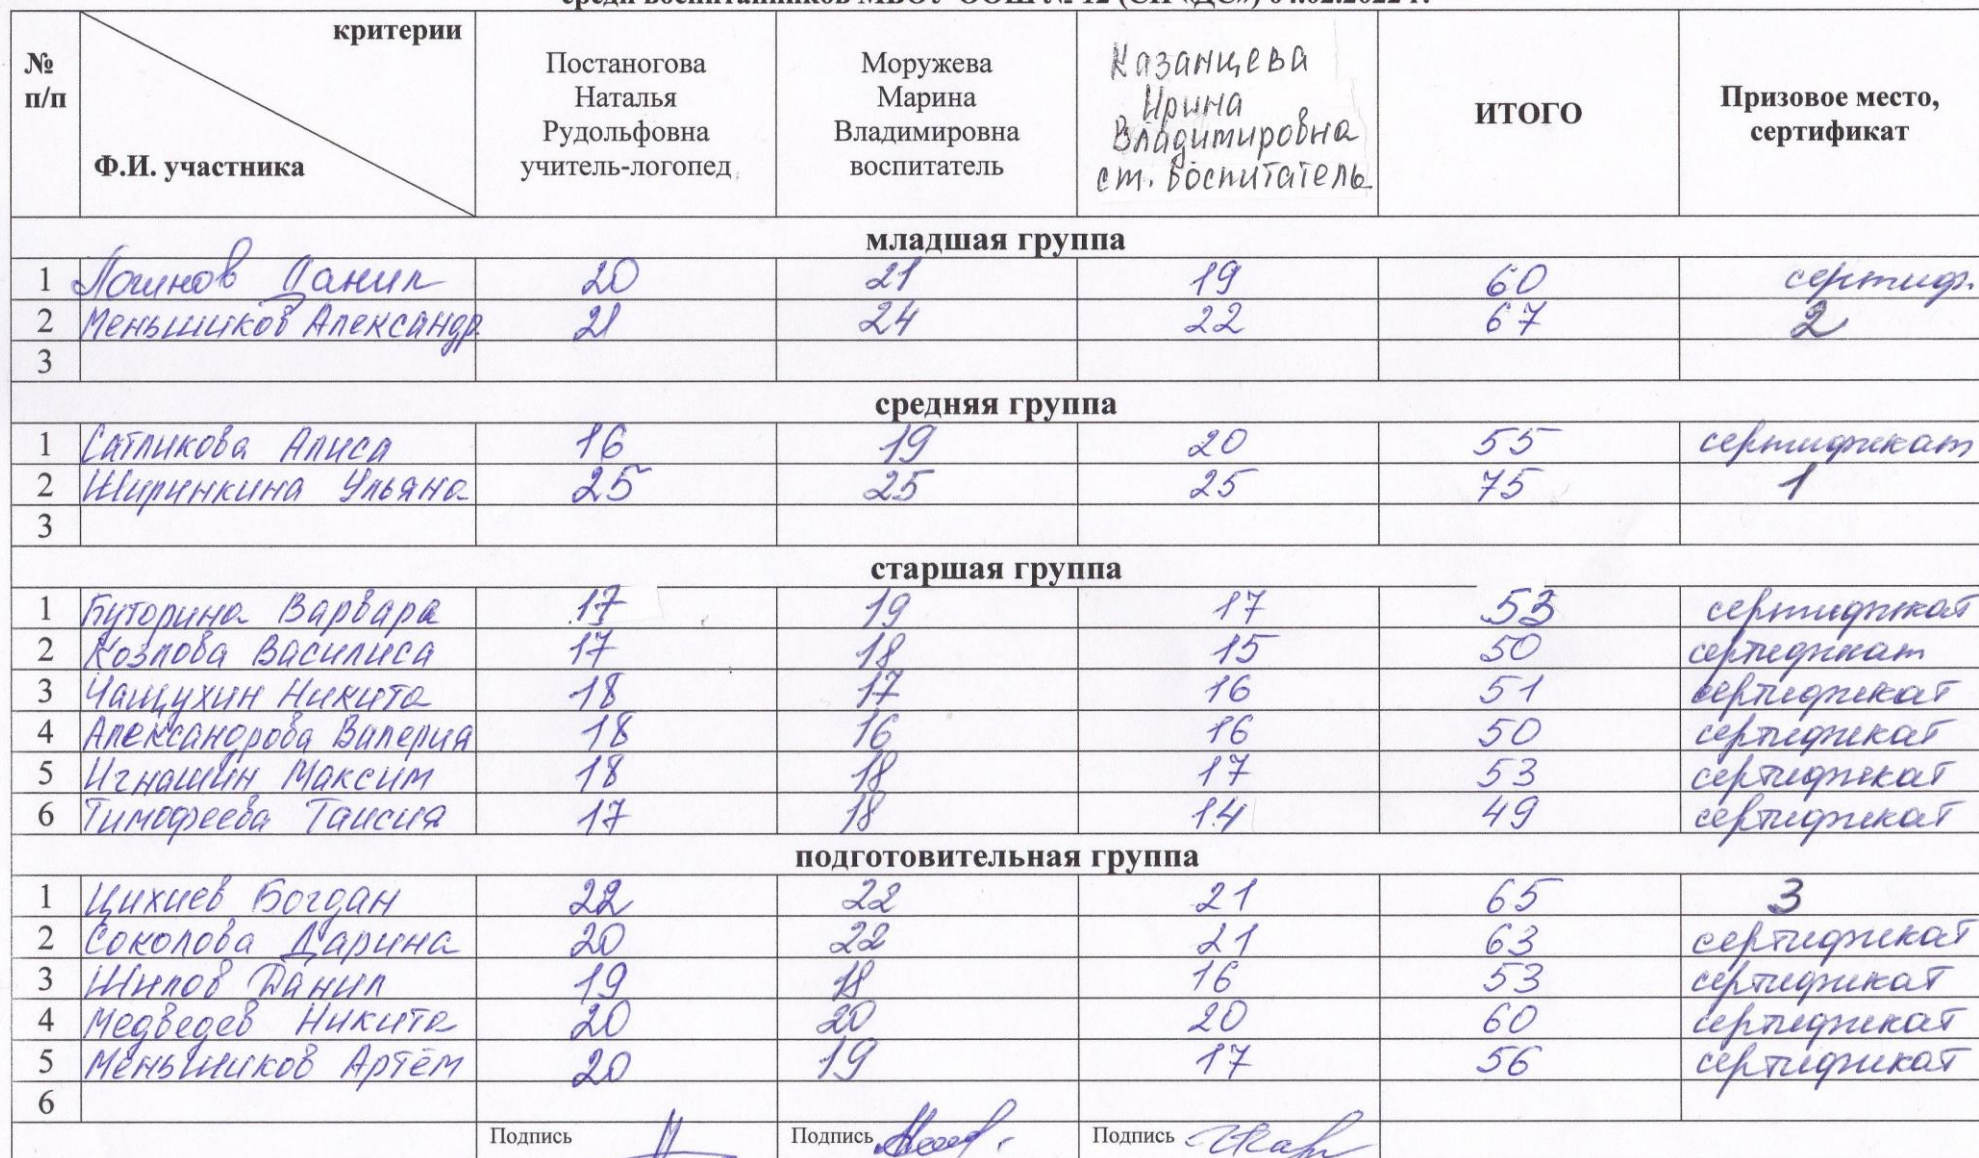 среди воспитанников МБОУ ООШ № 12 (СП «ДС») 04.02.2022 г.
№ п/п
критерии
Ф.И. участника
Постаногова Наталья Рудольфовна учитель-логопед
Моружева Марина Владимировна воспитатель
Казанцева Ирина Владимировна ст. воспитатель
ИТОГО
Призовое место, сертификат
младшая группа
1 Логинов Данил 20 21 19 60 сертиф.
2 Меньшиков Александр 21 24 22 67 2
3
средняя группа
1 Сатликова Алиса 16 19 20 55 сертификат
2 Ширинкина Ульяна 25 25 25 75 1
3
старшая группа
1 Буторина Варвара 17 19 17 53 сертификат
2 Козлова Василиса 17 18 15 50 сертификат
3 Чащухин Никита 18 17 16 51 сертификат
4 Александрова Валерия 18 16 16 50 сертификат
5 Игнашин Максим 18 18 17 53 сертификат
6 Тимофеева Таисия 17 18 14 49 сертификат
подготовительная группа
1 Цихиев Богдан 22 22 21 65 3
2 Соколова Дарина 20 22 21 63 сертификат
3 Шилов Данил 19 18 16 53 сертификат
4 Медведев Никита 20 20 20 60 сертификат
5 Меньшиков Артём 20 19 17 56 сертификат
6
Подпись Подпись Подпись